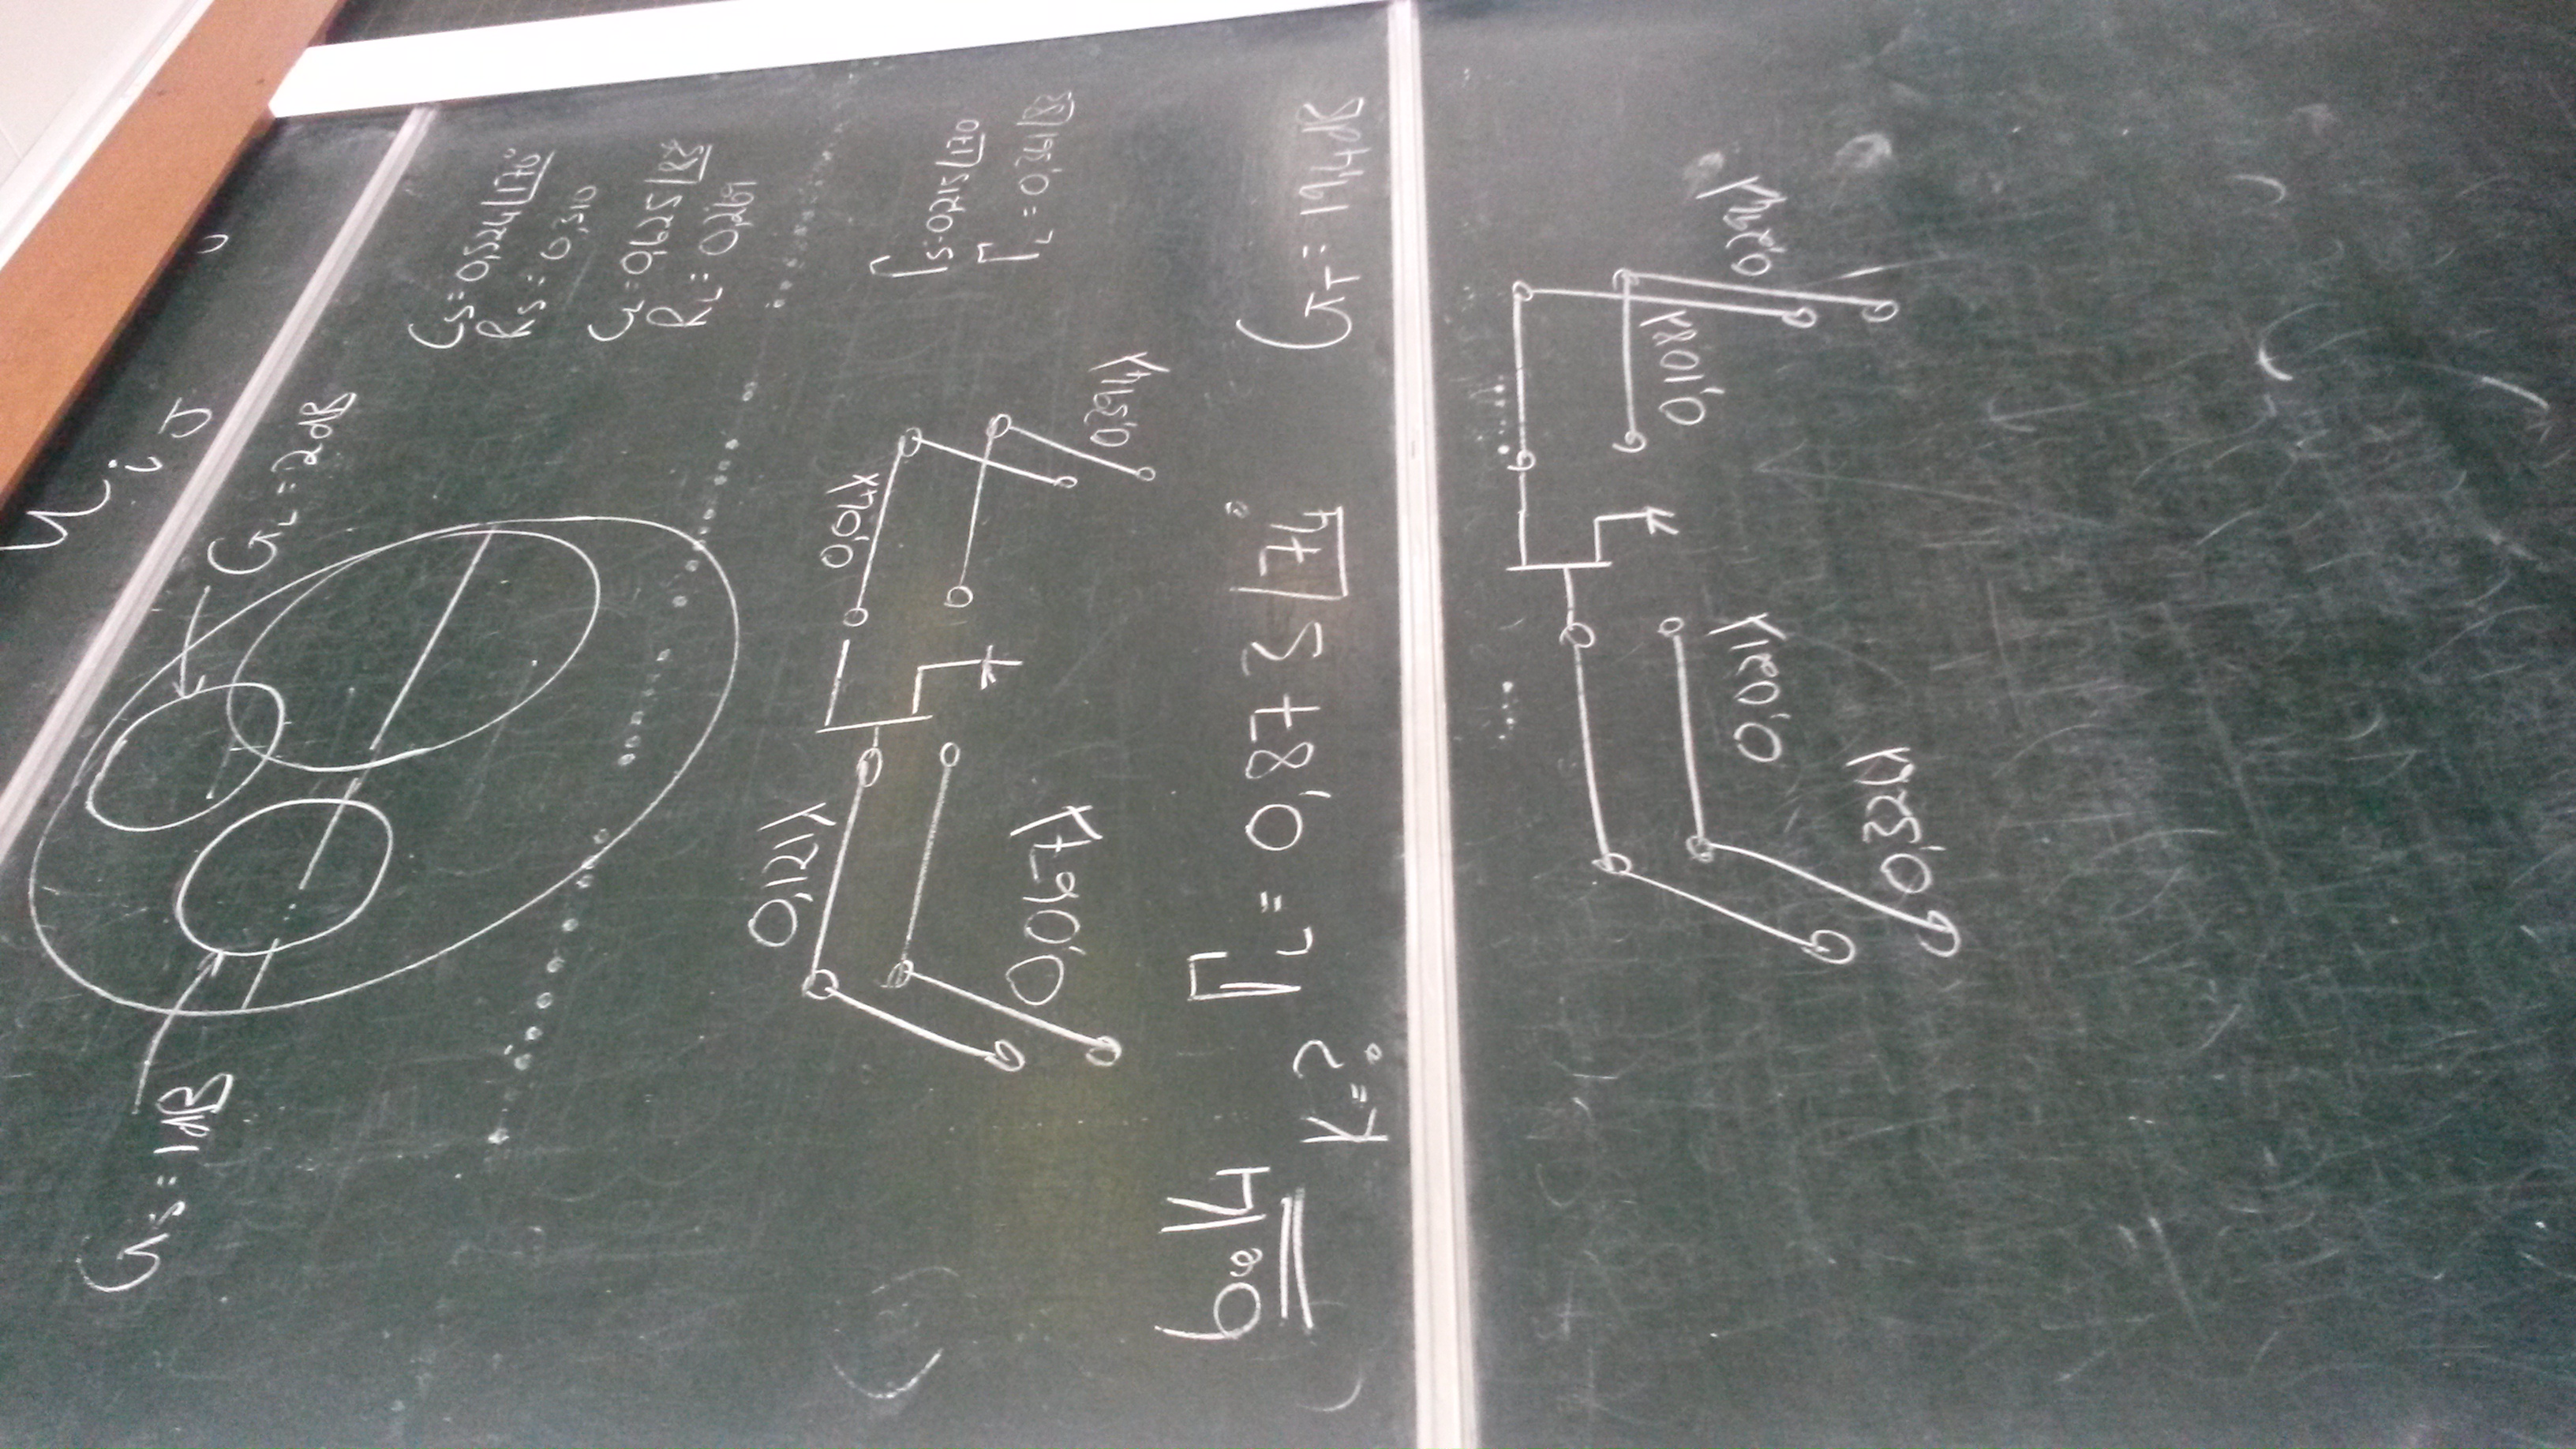 G_S = 1dB
G_L = 2dB
C_S = 0,524∠170°
R_S = 0,310
C_L = 0,625∠83°
R_L = 0,269
0,121λ
0,04λ
0,067λ
0,394λ
Γ_S = 0,215∠170
Γ_L = 0,361∠83
6.14
K = ?
Γ_L = 0,873∠74°
G_T = 19,4dB
0,108λ
0,294λ
0,021λ
0,326λ